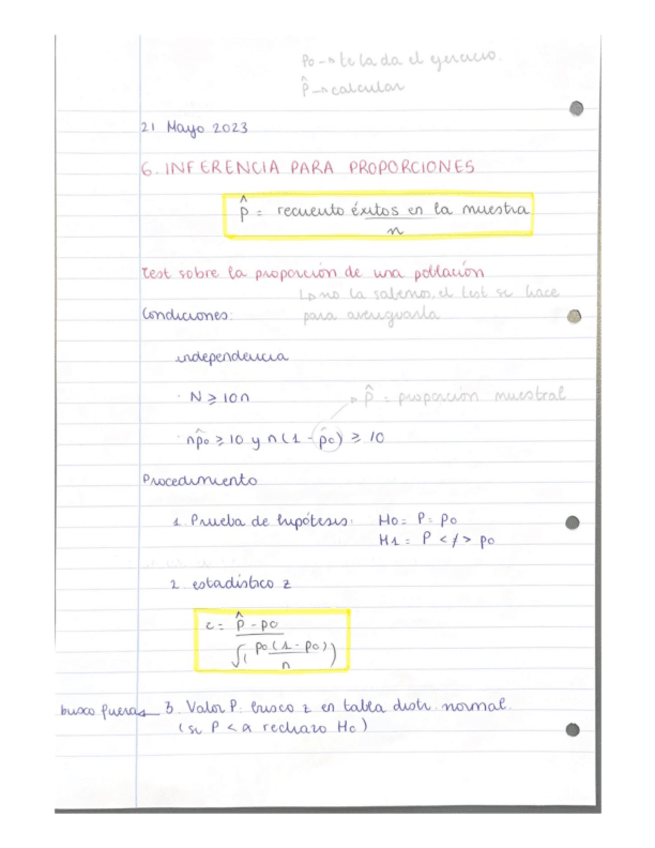 Po → te la da el ejercicio.
p̂ → calcular
21 Mayo 2023
6. INFERENCIA PARA PROPORCIONES
p̂ = recuento éxitos en la muestra
n
Test sobre la proporción de una población
↳ no la sabemos, el test se hace
Condiciones:
para averiguarla
independencia
· N ≥ 10n
→ p̂ = proporción muestral
· np̂o ≥ 10 y n(1 - p̂o) ≥ 10
Procedimiento
1. Prueba de hipótesis: H0 = P = po
H1 = P < / > po
2 estadístico z
z = p̂ - po
√( po(1 - po) )
n
busco fueras 3. Valor P. busco z en tabla distr. normal.
(si P < α rechazo Ho)